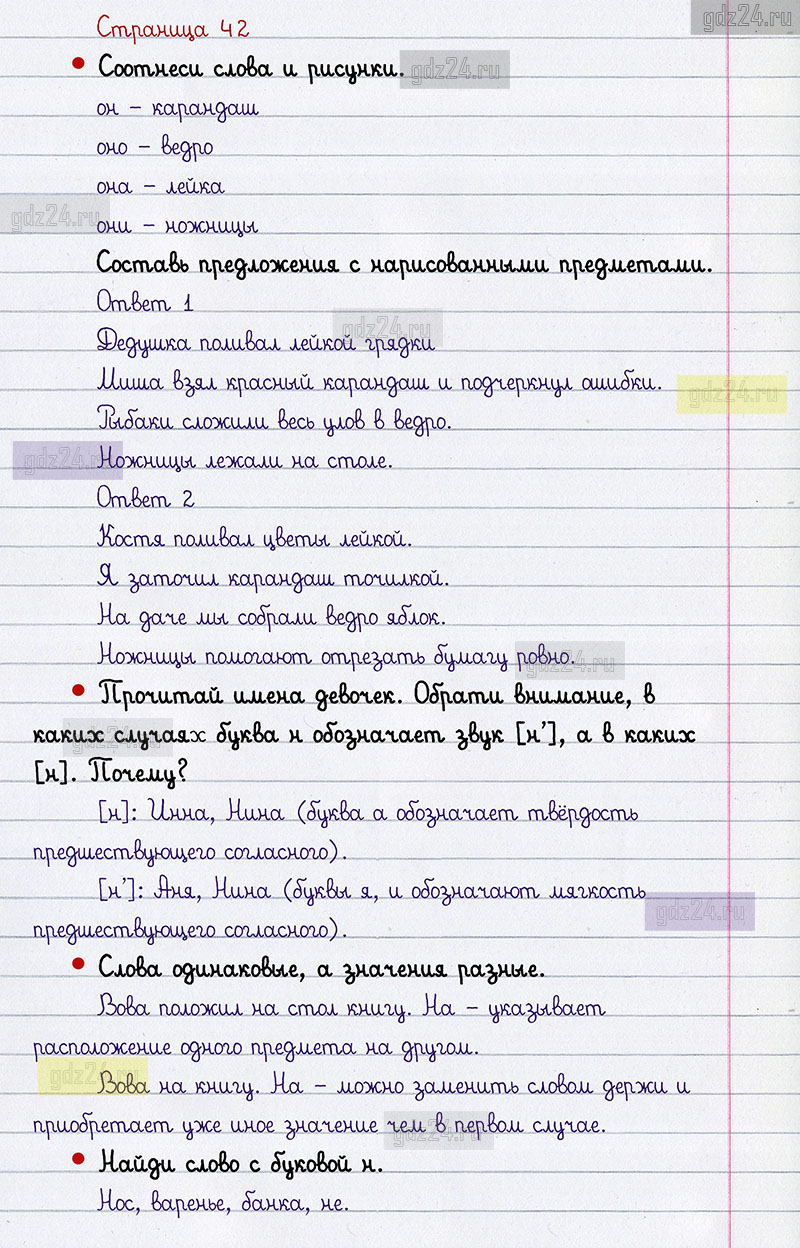 gdz24.ru
Страница 42
Соотнеси слова и рисунки. gdz24.ru
он – карандаш
оно – ведро
она – лейка
gdz24.ru
они – ножницы
Составь предложения с нарисованными предметами.
Ответ 1
gdz24.ru
Дедушка поливал лейкой грядки
Миша взял красный карандаш и подчеркнул ошибки.
gdz24.ru
Рыбаки сложили весь улов в ведро.
gdz24.ru
Ножницы лежали на столе.
Ответ 2
Костя поливал цветы лейкой.
Я заточил карандаш точилкой.
На даче мы собрали ведро яблок.
Ножницы помогают отрезать бумагу ровно.
gdz24.ru
Прочитай имена девочек. Обрати внимание, в
каких случаях буква н обозначает звук [н’], а в каких
gdz24.ru
[н]. Почему?
[н]: Инна, Нина (буква а обозначает твёрдость
предшествующего согласного).
[н’]: Аня, Нина (буквы я, и обозначают мягкость
gdz24.ru
предшествующего согласного).
Слова одинаковые, а значения разные.
Вова положил на стол книгу. На – указывает
расположение одного предмета на другом.
gdz24.ru
Вова на книгу. На – можно заменить словом держи и
приобретает уже иное значение чем в первом случае.
gdz24.ru
Найди слово с буковой н.
Нос, варенье, банка, не.